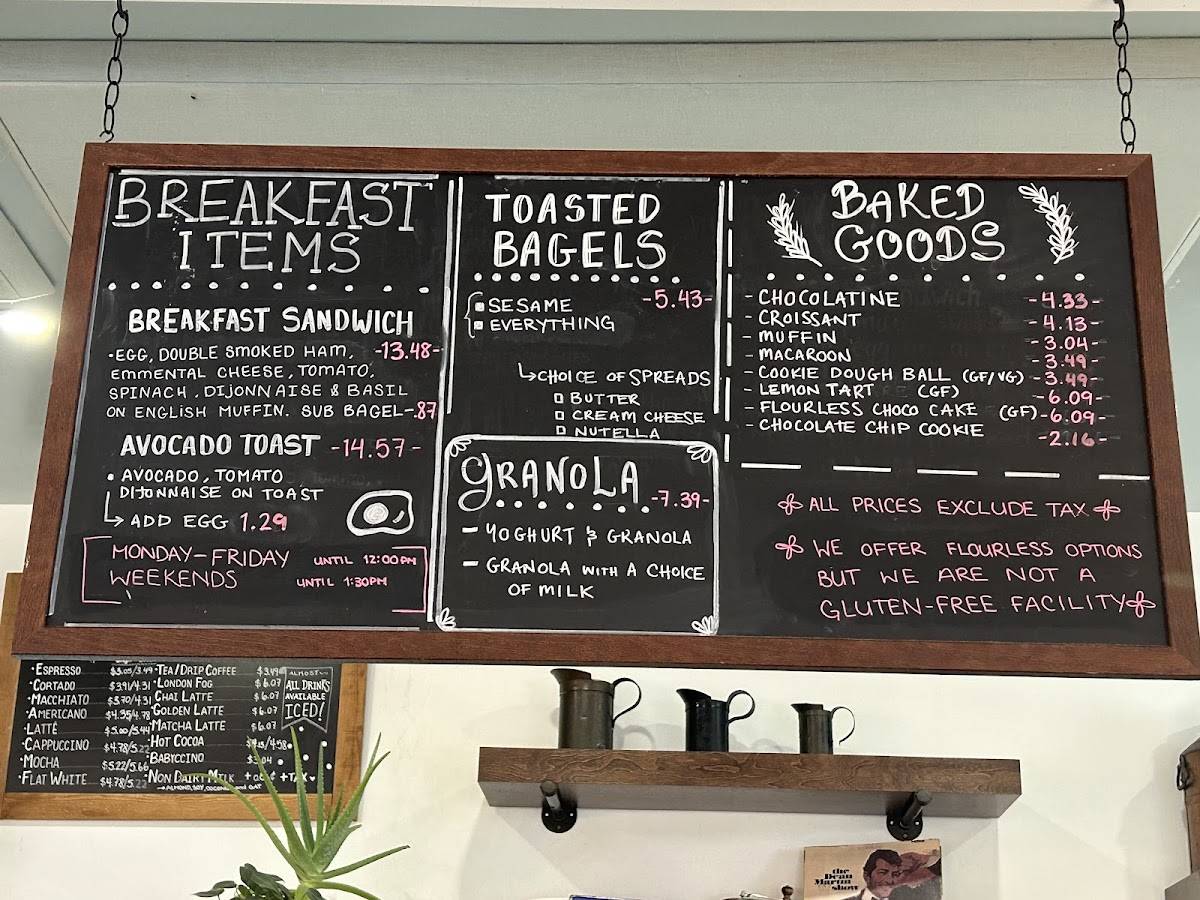 BREAKFAST
ITEMS
BREAKFAST SANDWICH
• EGG, DOUBLE SMOKED HAM, -13.48-
EMMENTAL CHEESE, TOMATO,
SPINACH, DIJONNAISE & BASIL
ON ENGLISH MUFFIN. SUB BAGEL -.87
AVOCADO TOAST -14.57-
• AVOCADO, TOMATO
DIJONNAISE ON TOAST
↳ ADD EGG 1.29
MONDAY-FRIDAY UNTIL 12:00PM
WEEKENDS UNTIL 1:30PM
TOASTED
BAGELS
SESAME -5.43-
EVERYTHING
↳ CHOICE OF SPREADS
BUTTER
CREAM CHEESE
NUTELLA
GRANOLA -7.39-
- YOGHURT & GRANOLA
- GRANOLA WITH A CHOICE
OF MILK
BAKED
GOODS
- CHOCOLATINE -4.33-
- CROISSANT -4.13-
- MUFFIN -3.04-
- MACAROON -3.49-
- COOKIE DOUGH BALL (GF/VG) -3.49-
- LEMON TART (GF) -6.09-
- FLOURLESS CHOCO CAKE (GF) -6.09-
- CHOCOLATE CHIP COOKIE -2.16-
ALL PRICES EXCLUDE TAX
WE OFFER FLOURLESS OPTIONS
BUT WE ARE NOT A
GLUTEN-FREE FACILITY
• ESPRESSO $3.05/3.49
• CORTADO $3.91/4.31
• MACCHIATO $3.70/4.31
• AMERICANO $4.35/4.78
• LATTÉ $5.00/5.44
• CAPPUCCINO $4.78/5.22
• MOCHA $5.22/5.66
• FLAT WHITE $4.78/5.22
• TEA/DRIP COFFEE $3.49
• LONDON FOG $6.07
CHAI LATTE $6.07
• GOLDEN LATTE $6.07
• MATCHA LATTE $6.07
• HOT COCOA /4.58
• BABYCCINO
• NON DAIRY MILK + TAX
→ ALMOND, SOY, COCONUT and OAT
ALMOST
ALL DRINKS
AVAILABLE
ICED!
the
Dean
Martin
show